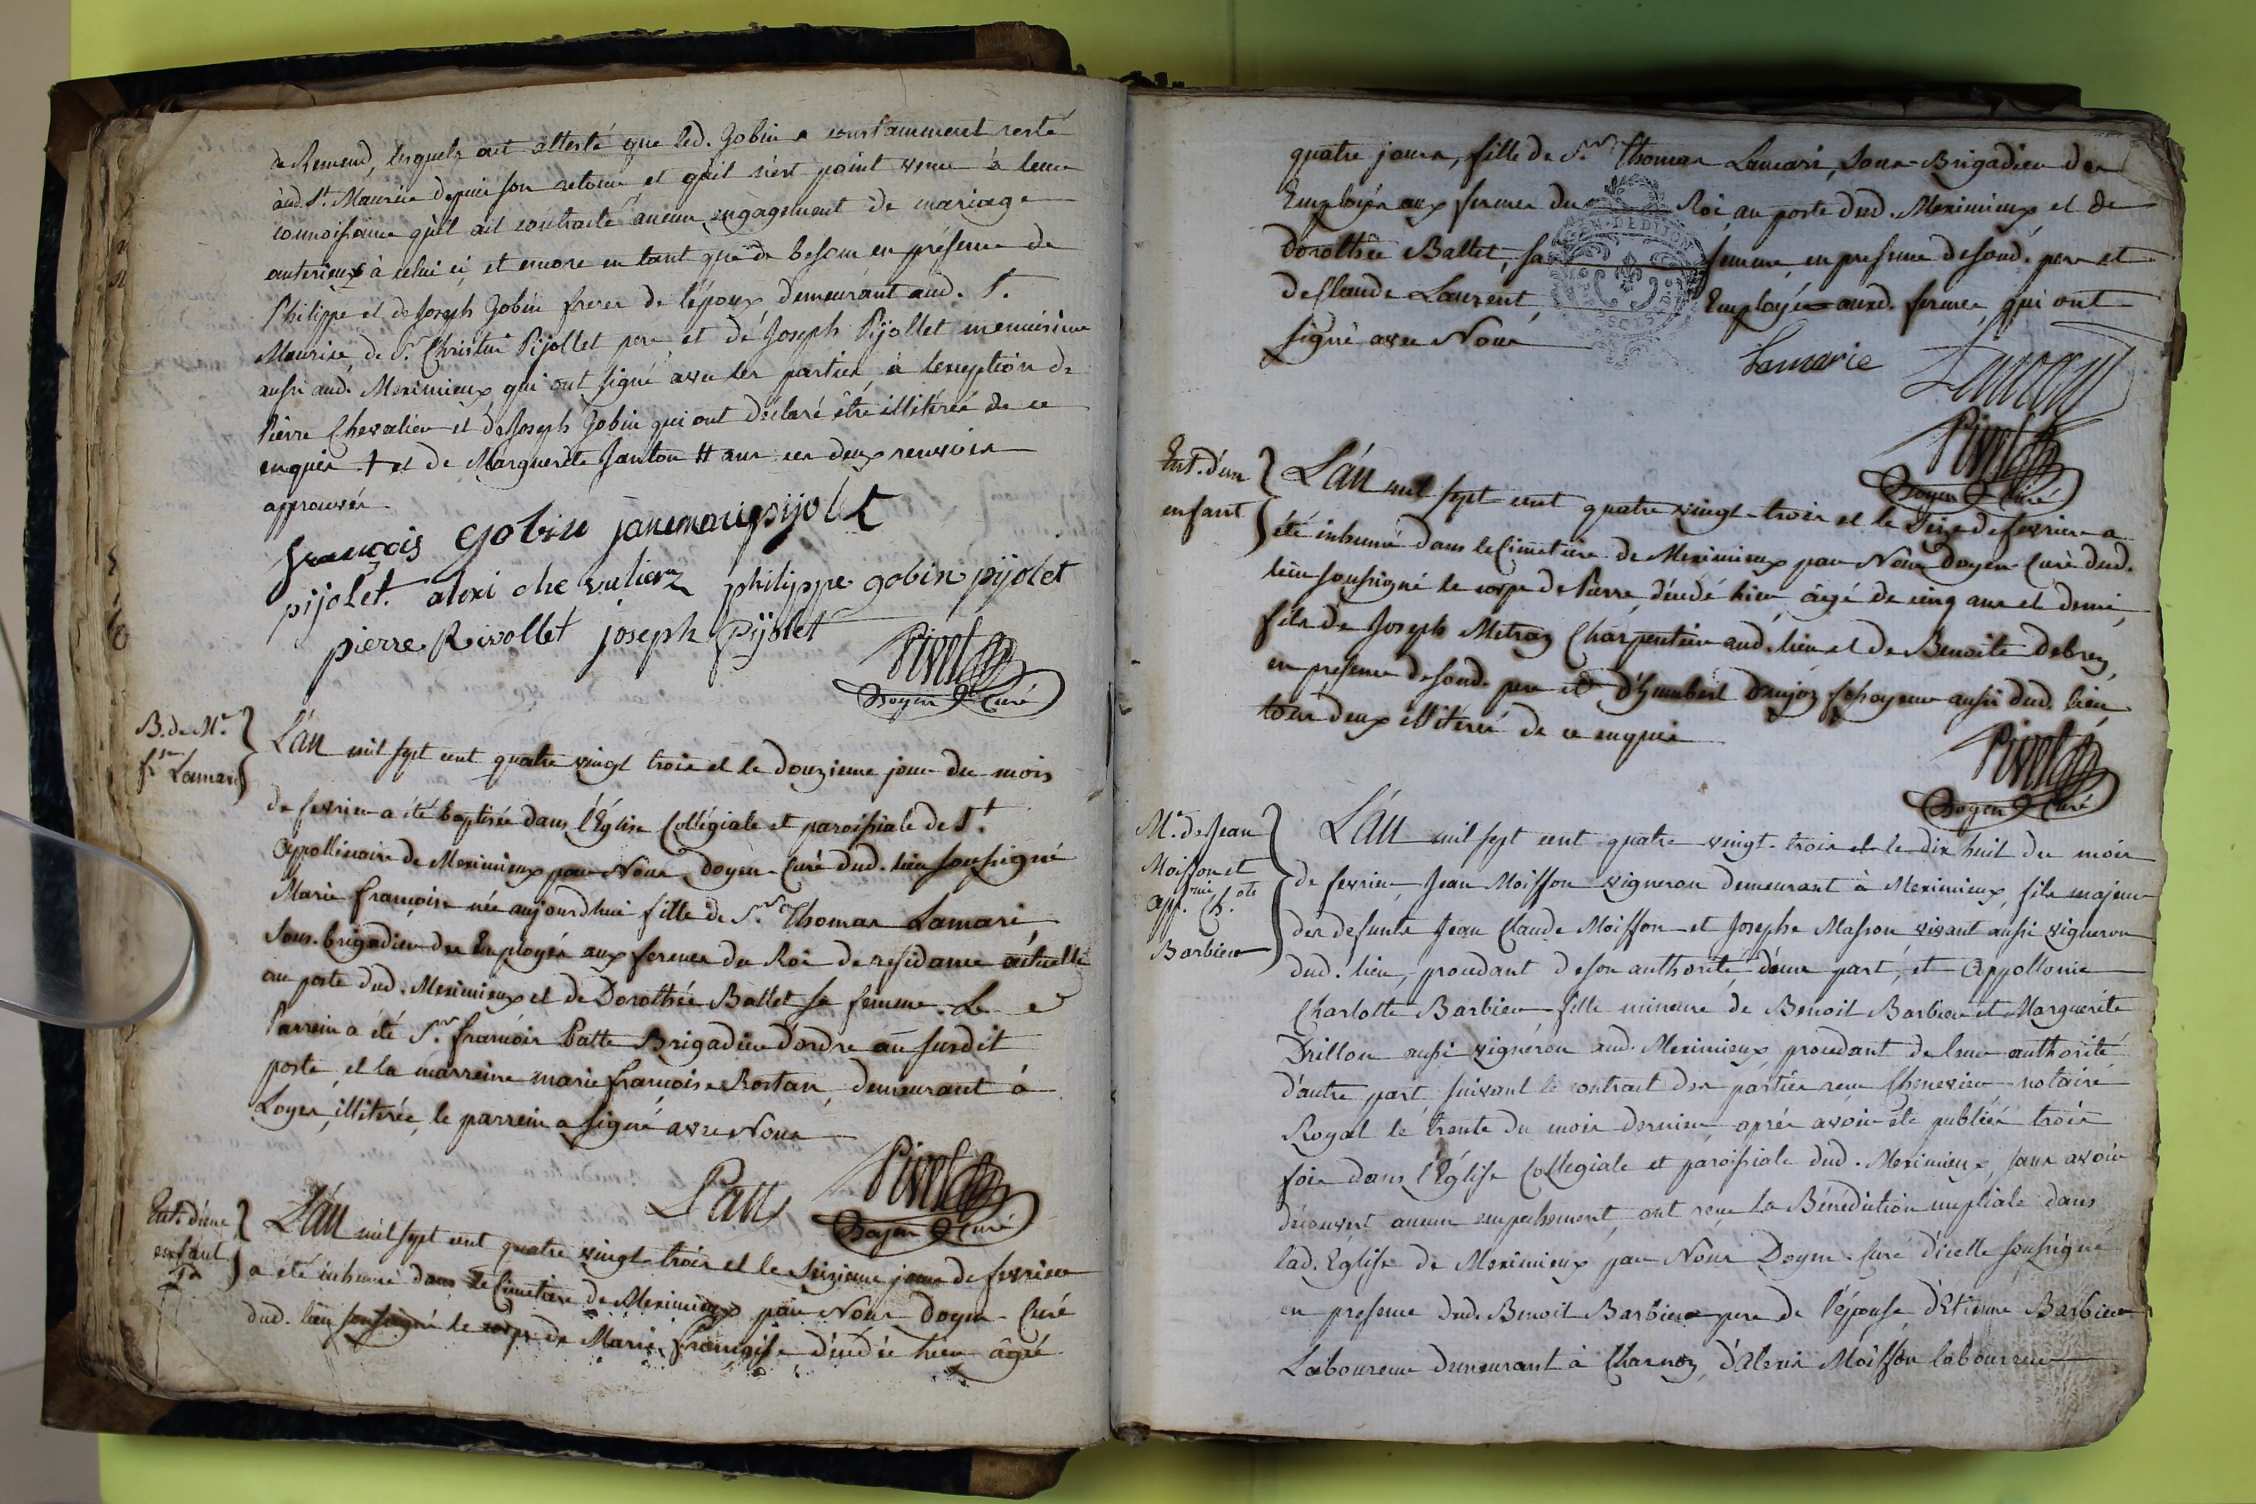 de Remend, lesquels ont attesté que led. Gobin a constamment resté
aud. St. Maurice depuis son retour et qu'il n'est point venu à leur
connoissance qu'il ait contracté aucun engagement de mariage
anterieur à celui ci, et encore en tant que de besoin en présence de
Philippe et de Joseph Gobin freres de l'époux demeurant aud. St.
Maurice, de Sr. Christin Pijollet pere et de Joseph Pijollet menuisier
aussi aud. Meximieux qui ont signé avec les parties, à l'exception de
Pierre Chevalier et de Joseph Gobin qui ont déclaré être illitérés de ce
enquis + et de Marguerite Janton # aux ces deux renvois
approuvés
françois gobin jannemariepijolet
pijolet. alexi chevulier philippe gobin pijolet
pierre Rivollet joseph Pijolet
Pivet
Doyen Curé
B. de Me.
fse Lamari
L'an mil sept cent quatre vingt trois et le douzieme jour du mois
de fevrier a été baptisée dans l'Église Collégiale et paroissiale de St.
Appollinaire de Meximieux par Nous Doyen-Curé dud. lieu soussigné
Marie françoise née aujourdhui fille de Sr. Thomas Lamari,
Sous-brigadier des Employés aux fermes du Roi de residance actuelle
au poste dud. Meximieux et de Dorothée Ballet sa femme. Le
Parrein a été Sr. françois Patte Brigadier d'ordre au susdit
poste, et la marreine marie françoise Rostan, demeurant à
Loyes, illiterée, le parrein a signé avec Nous
Patte
Pivet
Doyen Curé
Ent. d'une
enfant
L'an mil sept cent quatre vingt trois et le seizieme jour de fevrier
a été inhumé dans le Cimetiere de Meximieux par Nous Doyen-Curé
dud. lieu soussigné le corps de Marie françoise décédée hier âgée
quatre jours, fille de Sr. Thomas Lamari, Sous-Brigadier des
Employés aux fermes du Roi au poste dud. Meximieux et de
Dorothée Ballet, sa femme, en presence desond. pere et
de Claude Laurent, Employés auxd. fermes, qui ont
signé avec Nous
Lamarie Laurent
Pivet
Doyen Curé
Ent. d'un
enfant
L'an mil sept cent quatre vingt-trois et le Seize de fevrier a
été inhumé dans le Cimetiere de Meximieux par Nous Doyen-Curé dud.
lieu soussigné le corps de Pierre, décédé hier âgé de cinq ans et demi,
fils de Joseph Metraz Charpentier aud. lieu et de Benoite Debrez,
en presence desond. pere et d'Humbert Danjoz aussi dud. lieu,
tous deux illitérés de ce enquis
Pivet
Doyen Curé
Me. de Jean
Moisson et
App.nie Ch.ote
Barbier
L'an mil sept cent quatre vingt-trois et le dix huit du mois
de fevrier Jean Moisson vigneron demeurant à Meximieux, fils majeur
des defunts Jean Claude Moisson et Josephe Masson vivant aussi vigneron
dud. lieu, procédant deson authorité d'une part, et Appollonie
Charlotte Barbier fille mineure de Benoit Barbier et Marguerite
Drillon aussi vigneron aud. Meximieux procédant de leur authorité
d'autre part suivant le contract des parties reçu Chenevier notaire
Royal le trente du mois dernier, après avoir été publiés trois
fois dans l'Église Collégiale et paroissiale dud. Meximieux, sans avoir
découvert aucun empechement, ont reçu la Bénédiction nuptiale dans
lad. Église de Meximieux par Nous Doyen-Curé d'icelle soussigné
en presence dud. Benoit Barbier pere de l'épouse, d'Etienne Barbier
Laboureur demeurant à Charnoz, d'Alexis Moisson laboureur